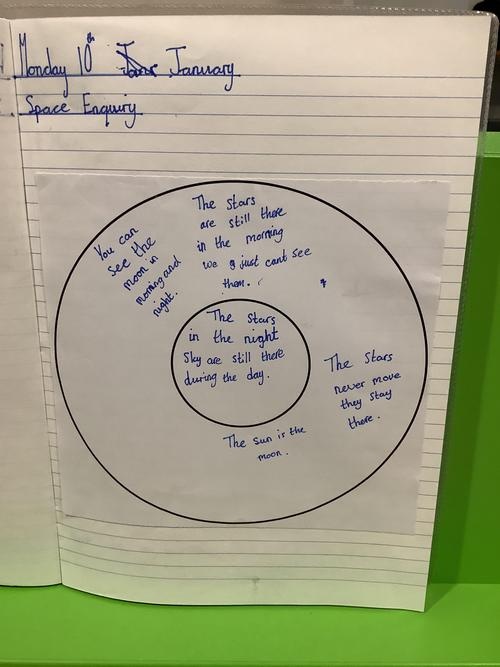 Monday 10th January
Space Enquiry
You can
see the
moon in
morning and
night.
The stars
are still there
in the morning
we just cant see
them.
The Stars
in the night
Sky are still there
during the day.
The stars
never move
they stay
there.
The sun is the
moon.